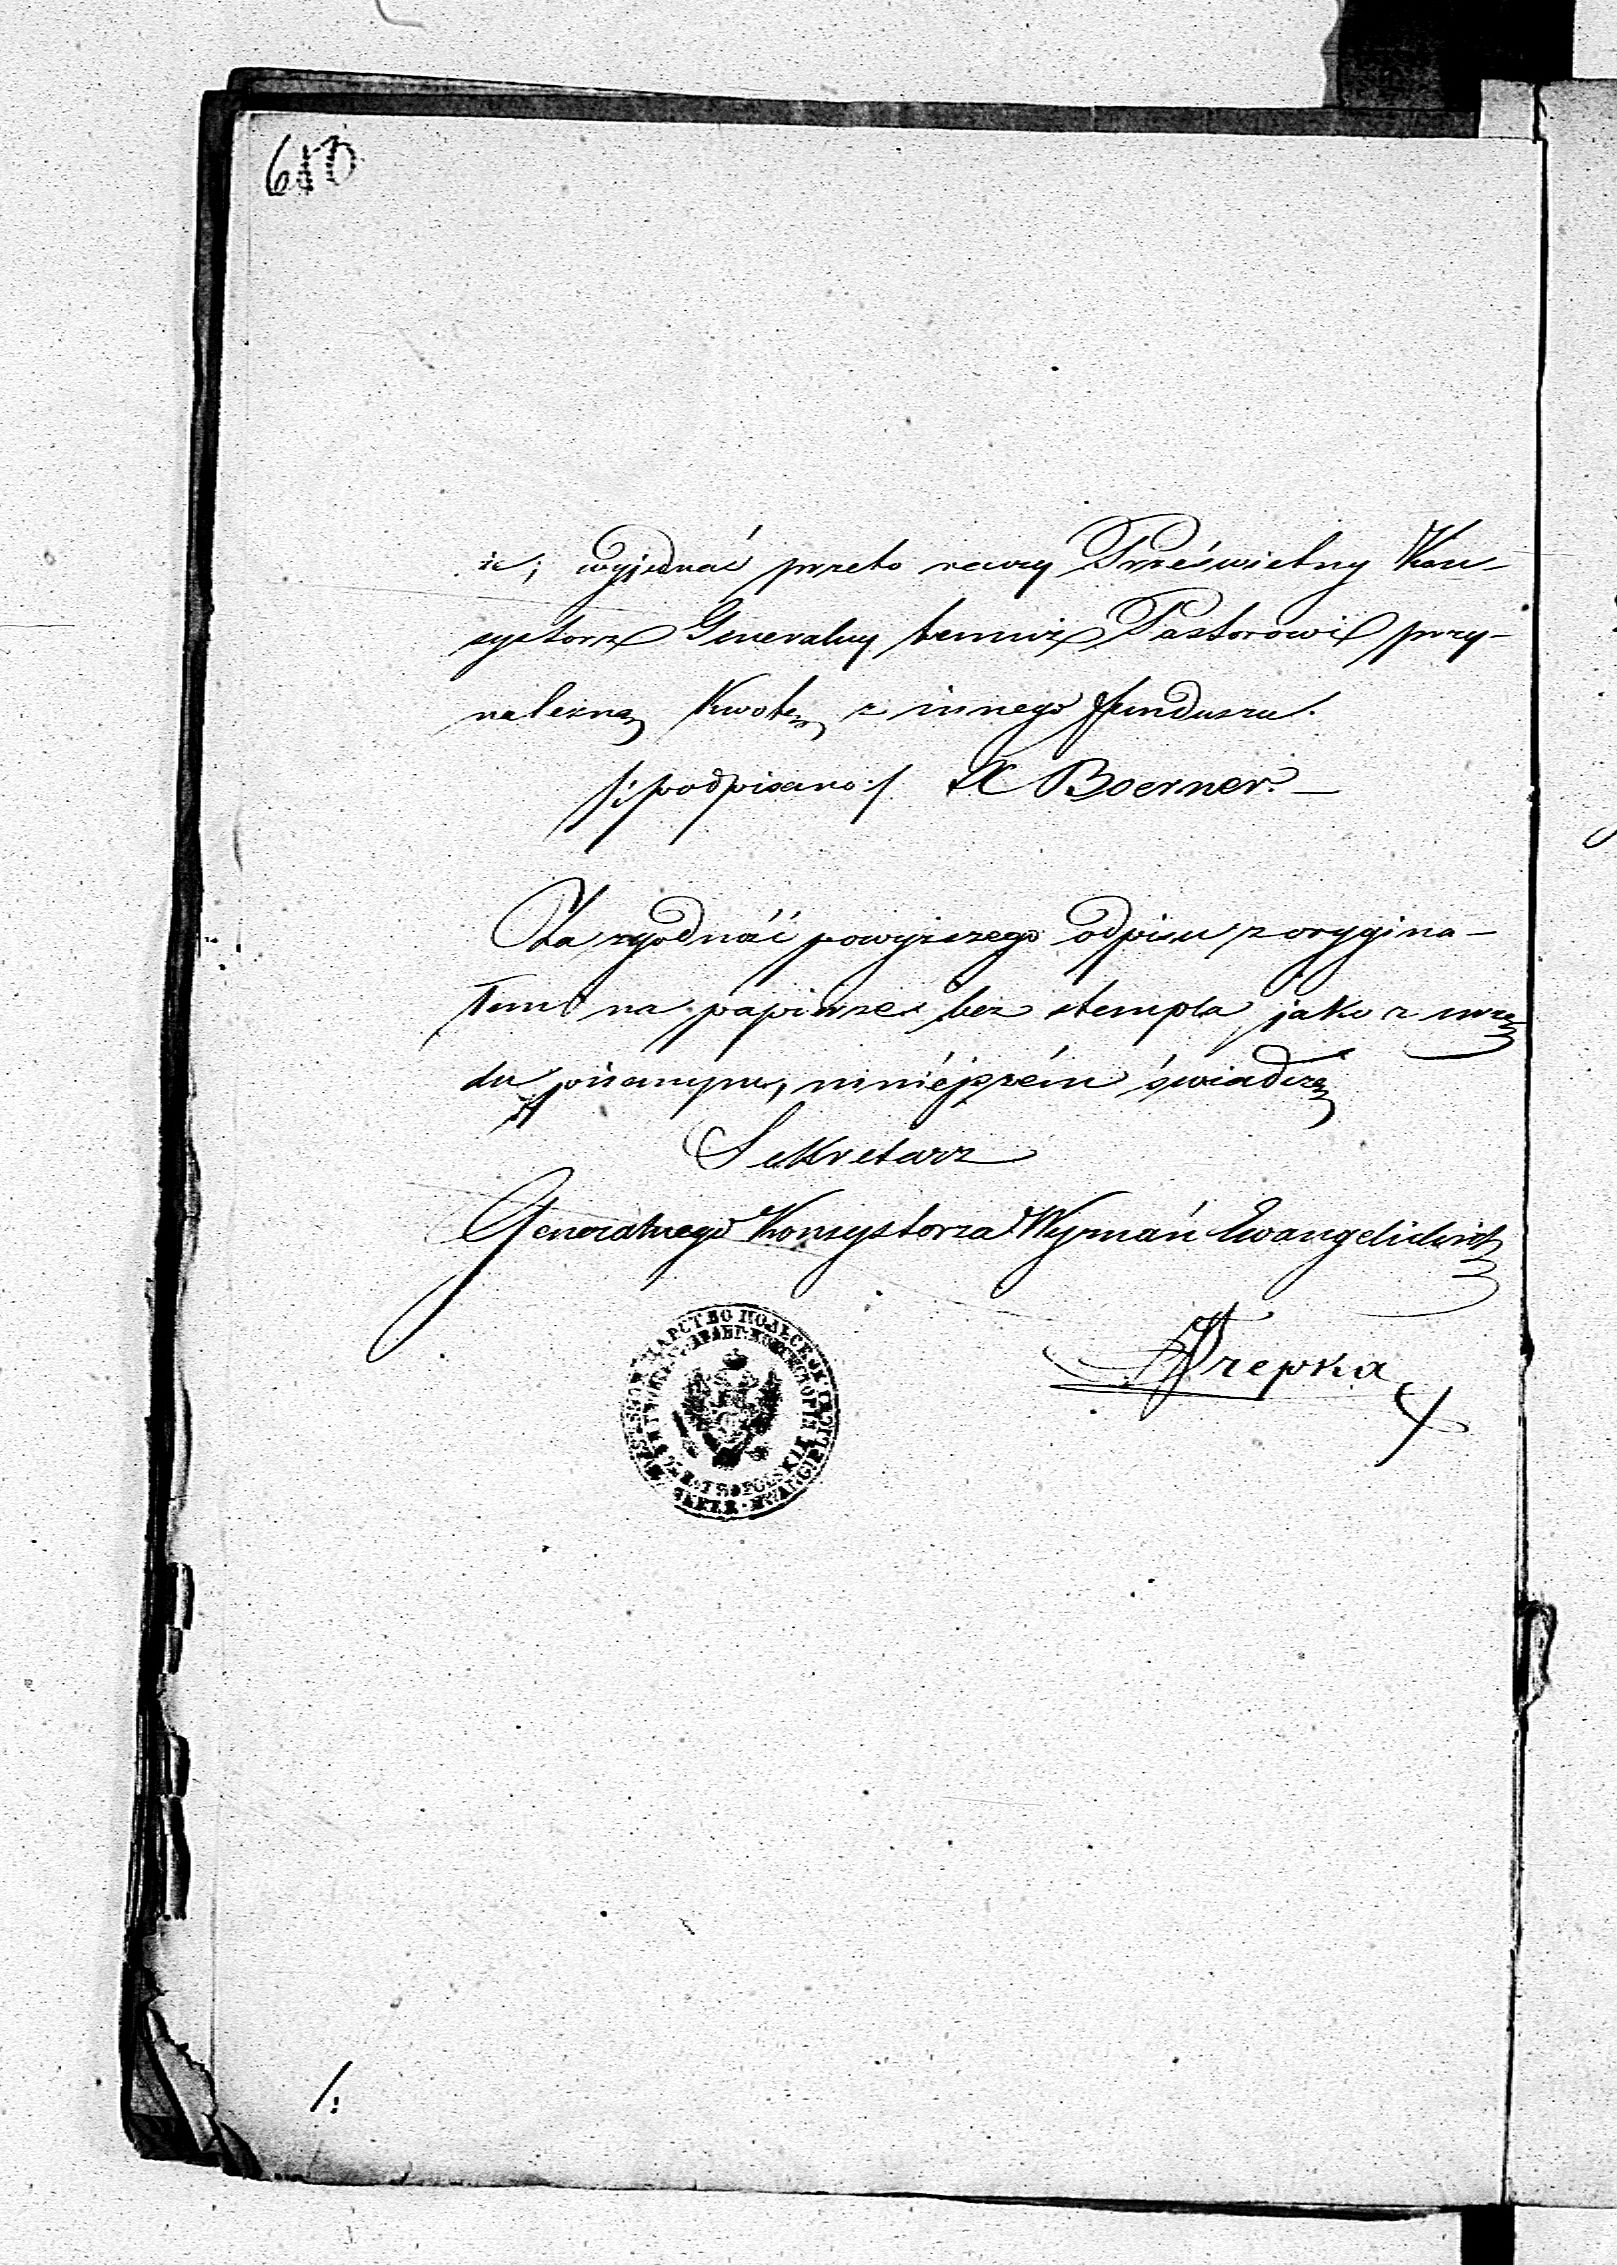 że; wyjednać przeto raczy Prześwietny Kon-
systorz Generalny temuż Pastorowi przy-
należną Kwotę z innego funduszu.
/: podpisano :/ X Boerner. —
Za zgodność powyższego odpisu z orygina-
łem na papierze bez stempla jako z urzę-
du pisanym, niniéjszém świadczę
Sekretarz
Generalnego Konsystorza Wyznań Ewangelickich
Trepka
/: